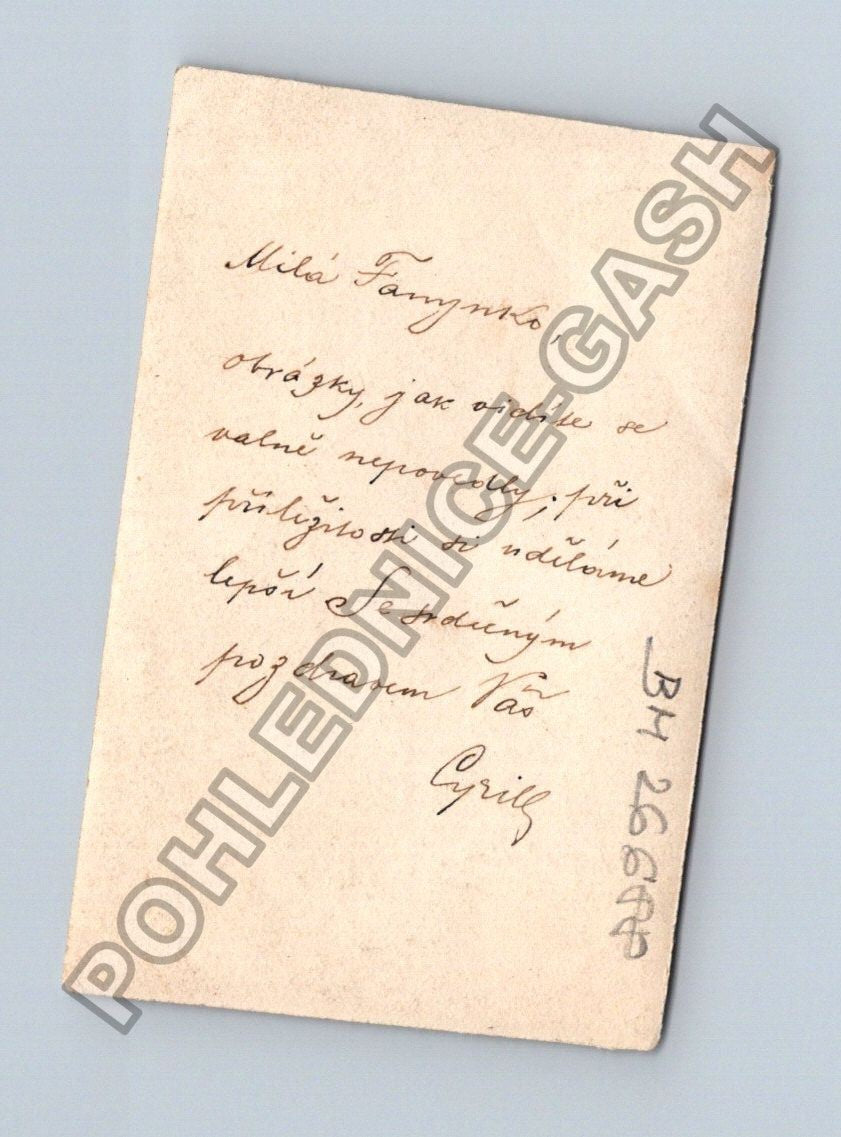 Milá Fanynko,
obrázky, jak vidíte se
valně nepovedly; při
příležitosti si uděláme
lepší Se srdečným
pozdravem Váš
Cyrill
BM 266
POHLEDNICE-GASH